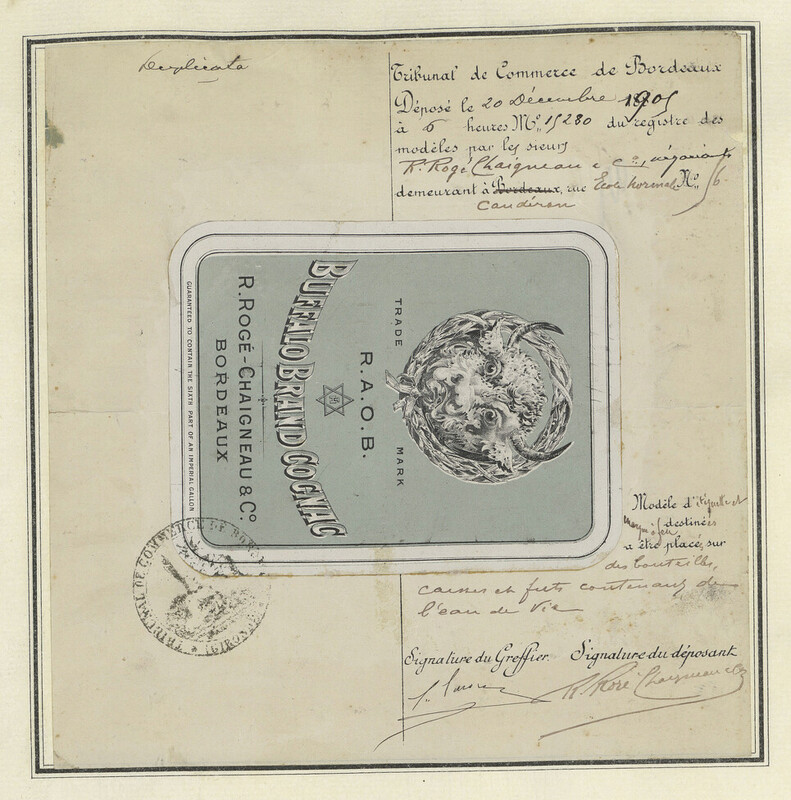 Duplicata
Tribunal de Commerce de Bordeaux
Déposé le 20 Décembre 1905
à 6 heures N° 15280 du registre des
modèles par les sieurs
R. Rogé Chaigneau & Cie, négociants
demeurant à Bordeaux, rue Ecole normale N° 56
Caudéran
TRADE MARK
R.A.O.B.
BUFFALO BRAND COGNAC
R. ROGÉ-CHAIGNEAU & Co
BORDEAUX
GUARANTEED TO CONTAIN THE SIXTH PART OF AN IMPERIAL GALLON
Modèle d'étiquette et
destinés
à être placés sur
des bouteilles,
caisses et futs contenant de
l'eau de Vie
TRIBUNAL DE COMMERCE DE
Signature du Greffier Signature du déposant
R. Rogé Chaigneau & Co